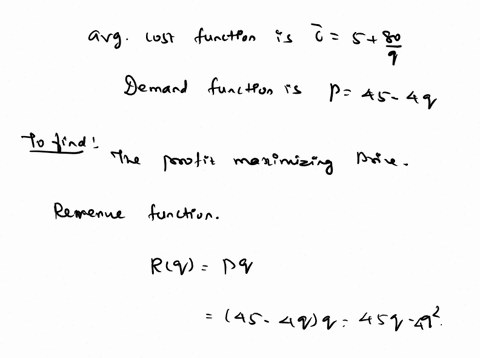 avg. cost function is c̄ = 5 + 80/q
Demand function is p = 45 - 4q
To find:
The profit maximizing price.
Revenue function.
R(q) = pq
= (45 - 4q)q = 45q - 4q².